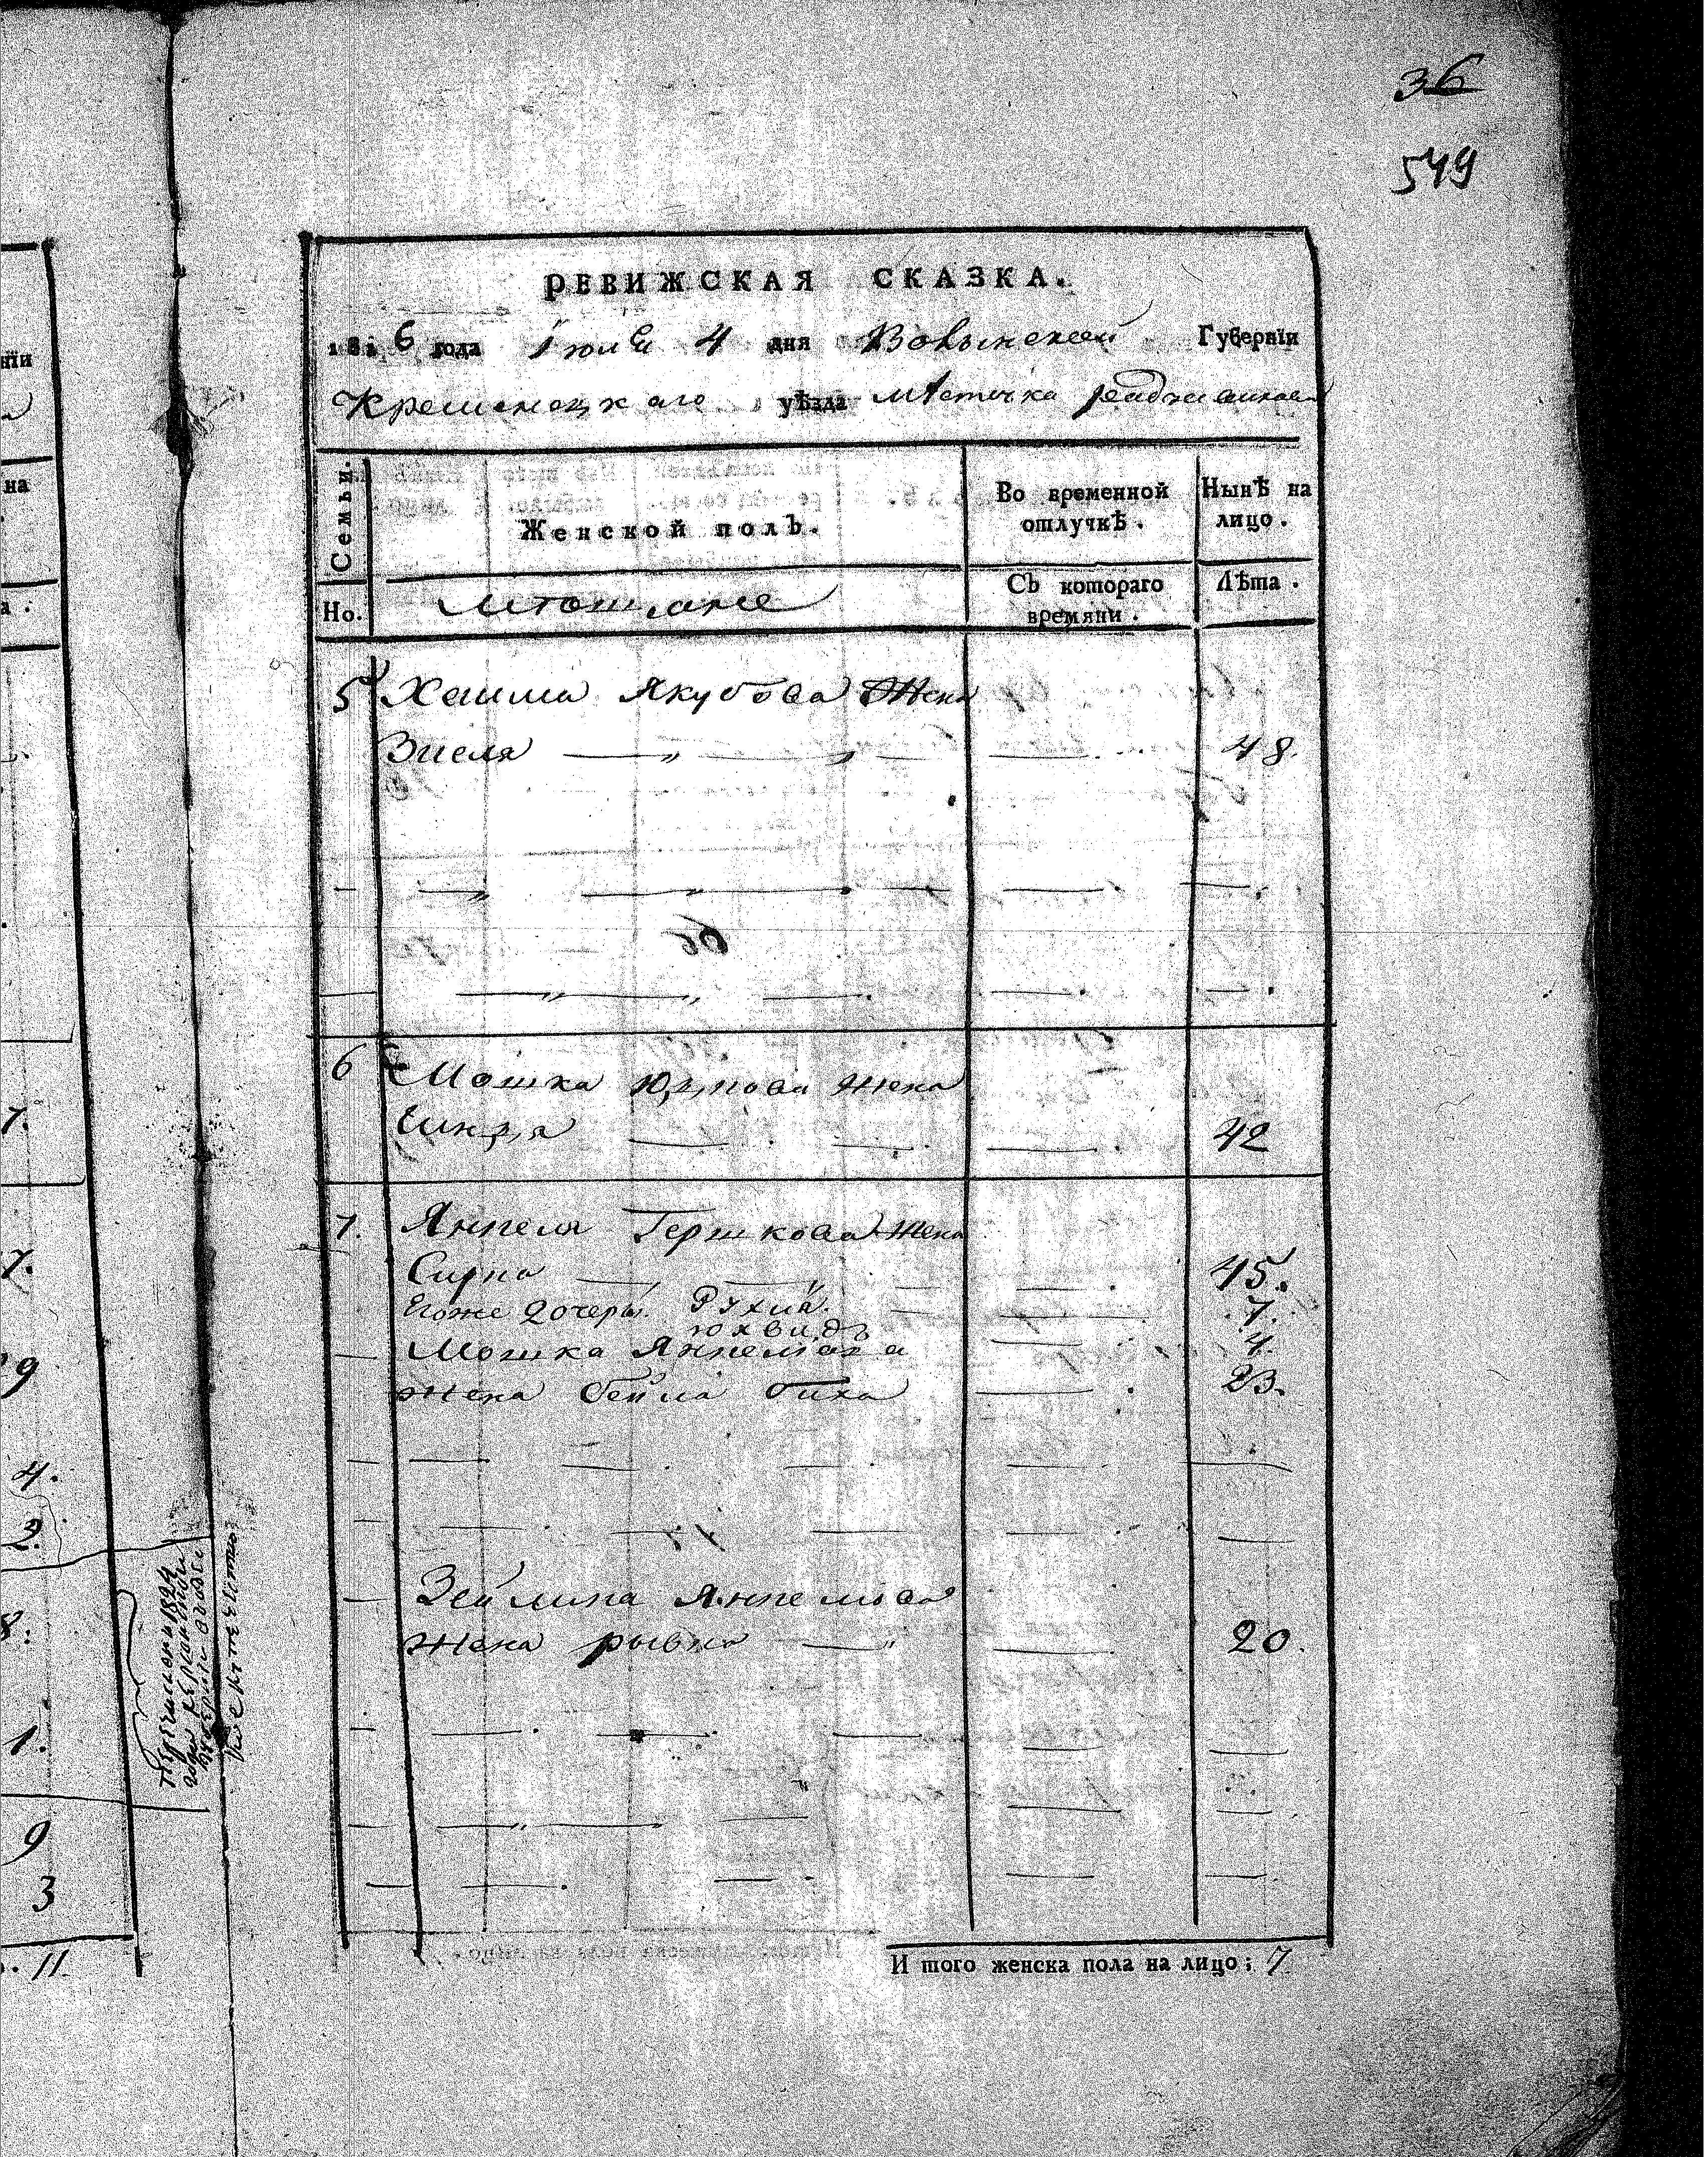 36
549
РЕВИЖСКАЯ СКАЗКА.
1816 года Іюля 4 дня Волынской Губерніи
Кременецкаго уѣзда мѣстечка
Семьи. Женской полъ. Во временной отлучкѣ. Нынѣ на лицо.
Но. Съ котораго времяни. Лѣта.
5 Хаима Якубова Жена
Зисля 48.
6 Мошка Юзпова жена
42
7. Янкеля Гершкова жена
Сирка 45.
Егоже дочеры Рухля 7.
юхвидъ 4.
Мошка Янкелюва
жена бейла 23.
Зейлика Янкелюва
жена рывка 20.
И того женска пола на лицо; 7
нїи
на
а.
7.
7.
9
4.
2.
8.
1.
9
3
11.